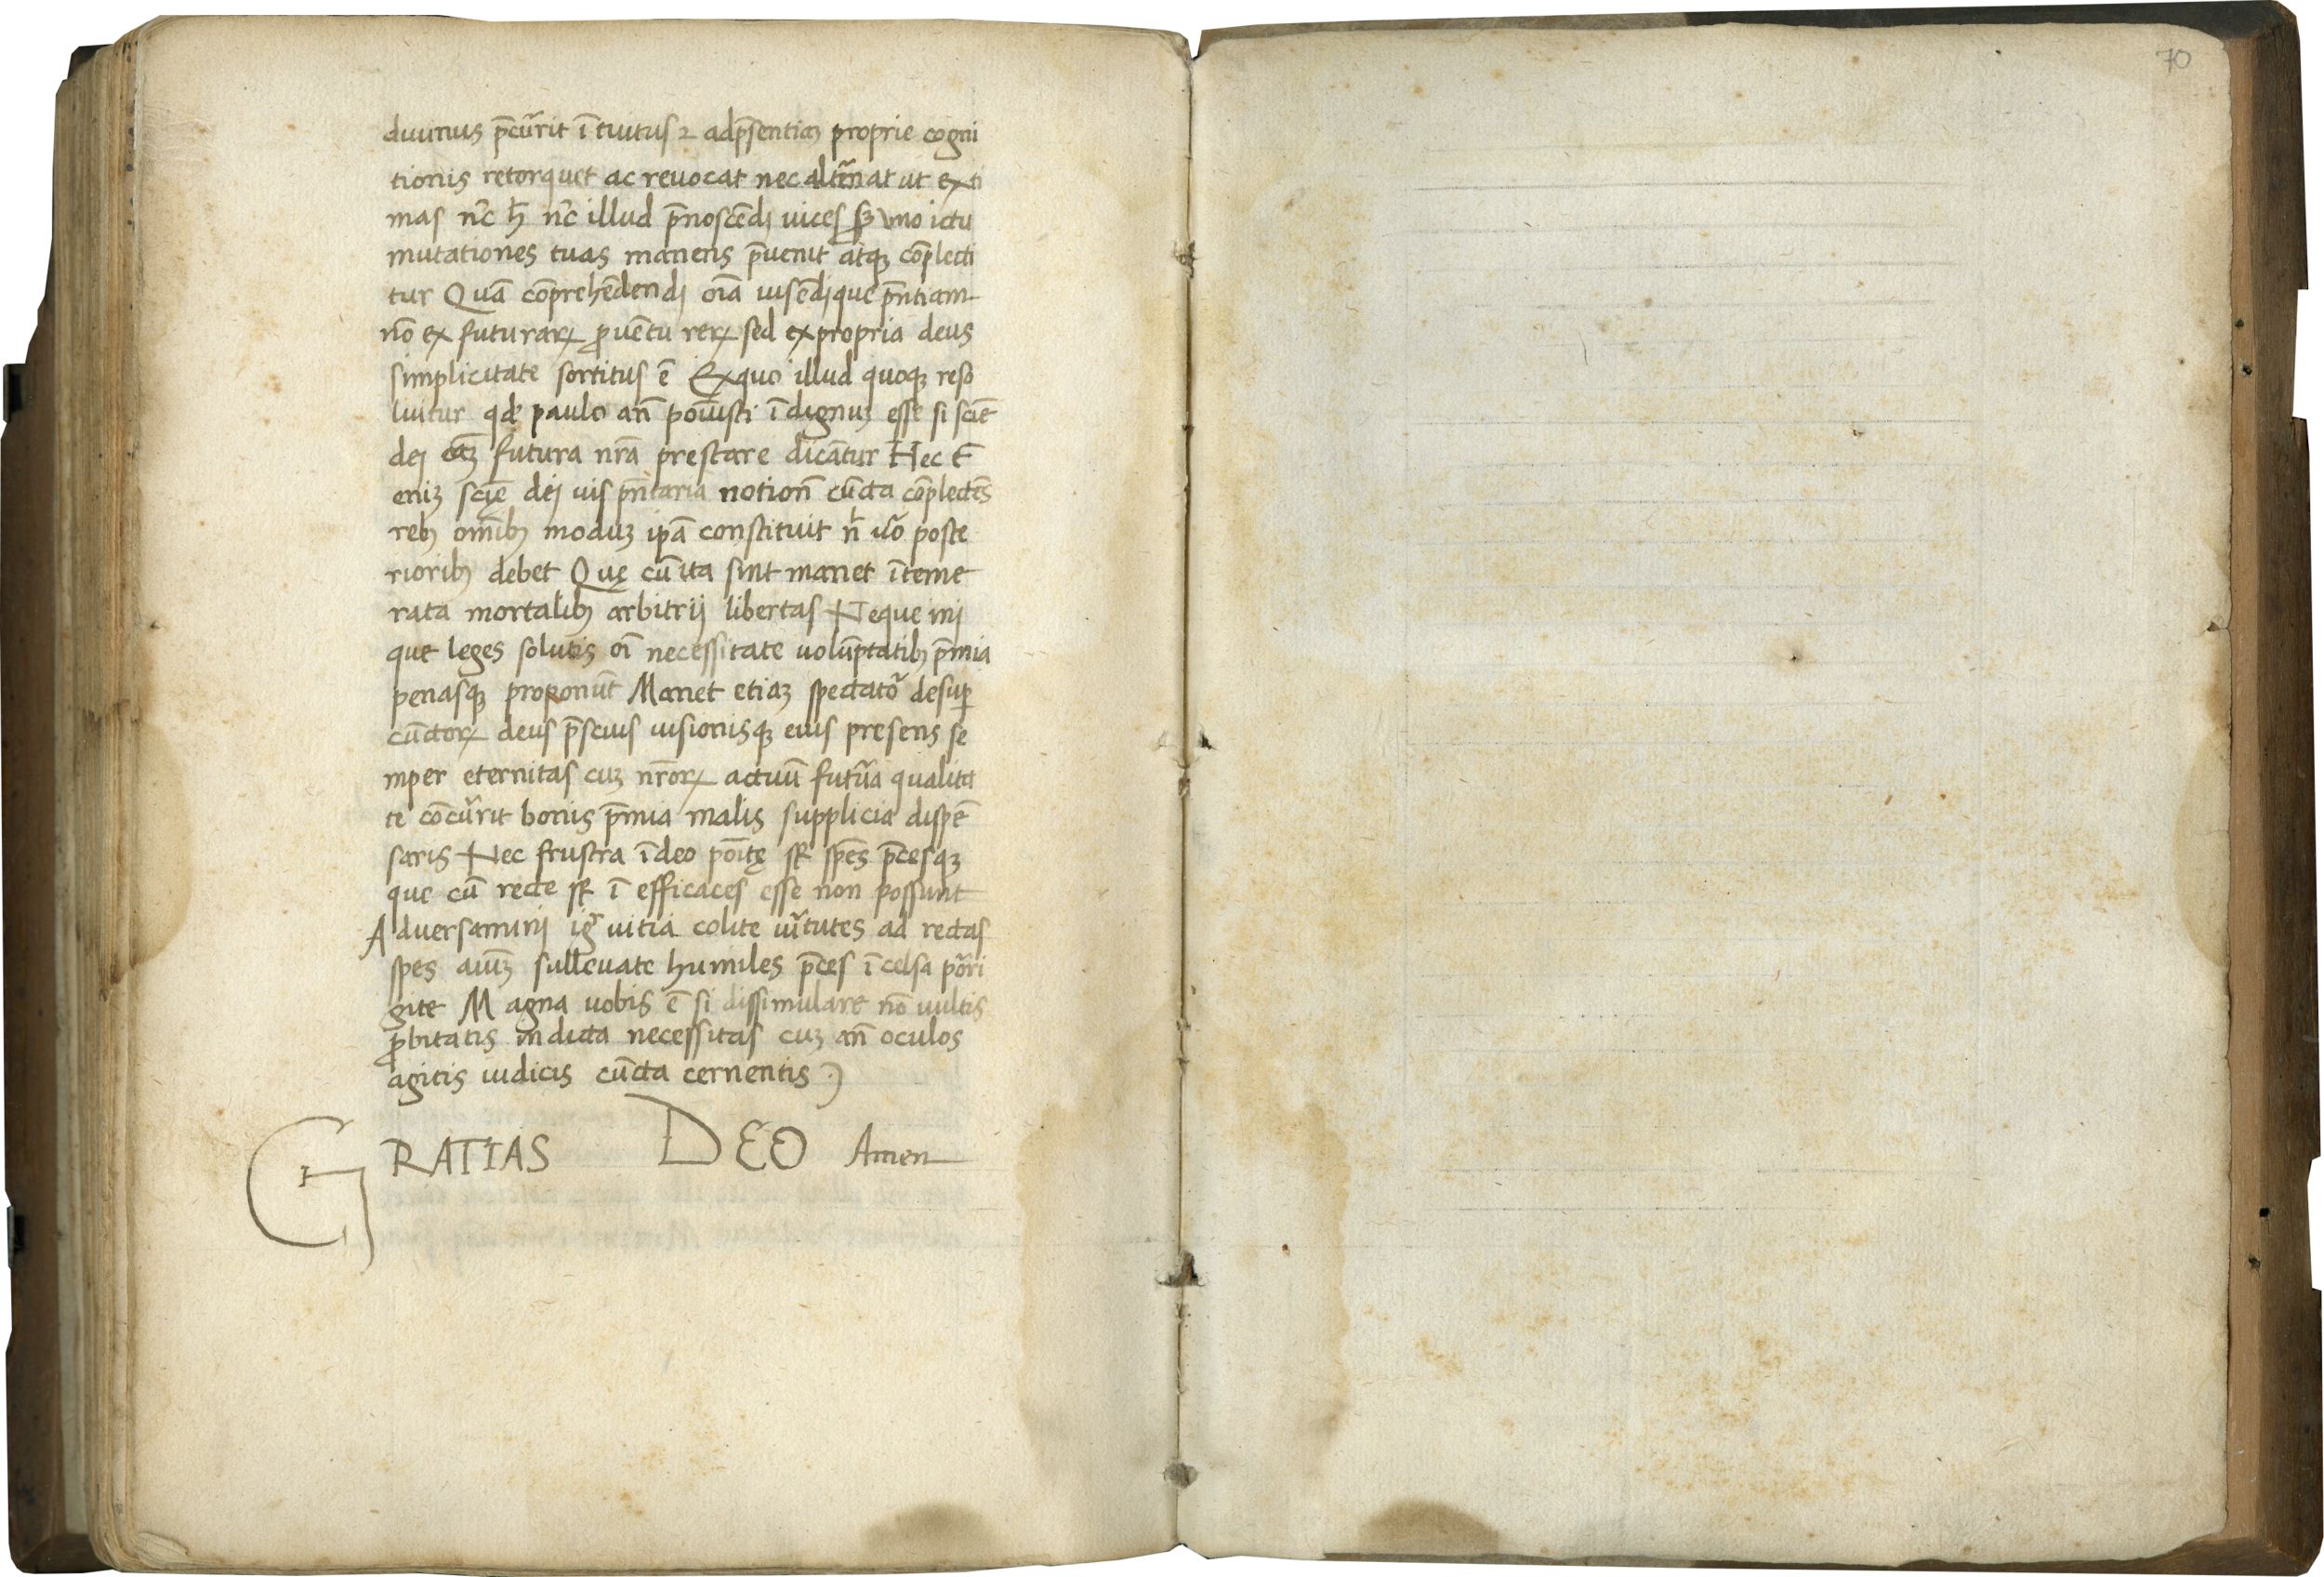 70
diuinus p̄cur̃rit ītuitus ⁊ adp̄sentiaꝫ proprie cogni
tionis retorquet ac reuocat nec alt̃nat ut exti
mas nc̄ ħ nc̄ illud p̄noscēdi uices sꝫ uno ictu
mutationes tuas manens p̄uenit atqꝫ cōplecti
tur Quā cōprehēdendi oīa uisēdique p̄ntiam
nō ex futuraꝝ ꝓuētu reꝝ sed ex propria deus
simplicitate sortitus ē Ex quo illud quoqꝫ reso
luitur qđ paulo añ posuisti īdignuꝫ esse si sciē
dei cāꝫ futura nr̄a prestare dicātur Hec ē
eniꝫ scię dei uis p̄ntaria notioñ cūcta cōplectēs
rebꝫ om̄ibꝫ moduꝫ ip̄a constituit n̄l u̅o poste
rioribꝫ debet Quę cū ita sint manet īteme
rata mortalibꝫ arbitrij libertas Neque ini
que leges solutis oī necessitate uolūptatibꝫ p̄mia
penasqꝫ proponūt Manet etiaꝫ spectato᷑ desuꝑ
cūctoꝝ deus p̄scius uisionisqꝫ eius presens se
mper eternitas cuꝫ nr̄oꝝ actuū futu᷑a qualita
te cōcur̃rit bonis p̄mia malis supplicia dispē
sans Nec frustra ī deo poītę st̄ spēs p̄cesqꝫ
que cū recte st̄ ī efficaces esse non possunt
Aduersamini ig̃ uitia colite ui᷑tutes ad rectas
spes aiūꝫ subleuate humiles p̄ces ī celsa po᷑ri
gite Magna uobis ē si dissimulare nō uultis
ꝓbitatis indicta necessitas cuꝫ añ oculos
agitis iudicis cūcta cernentis :)
GRATIAS DEO Amen